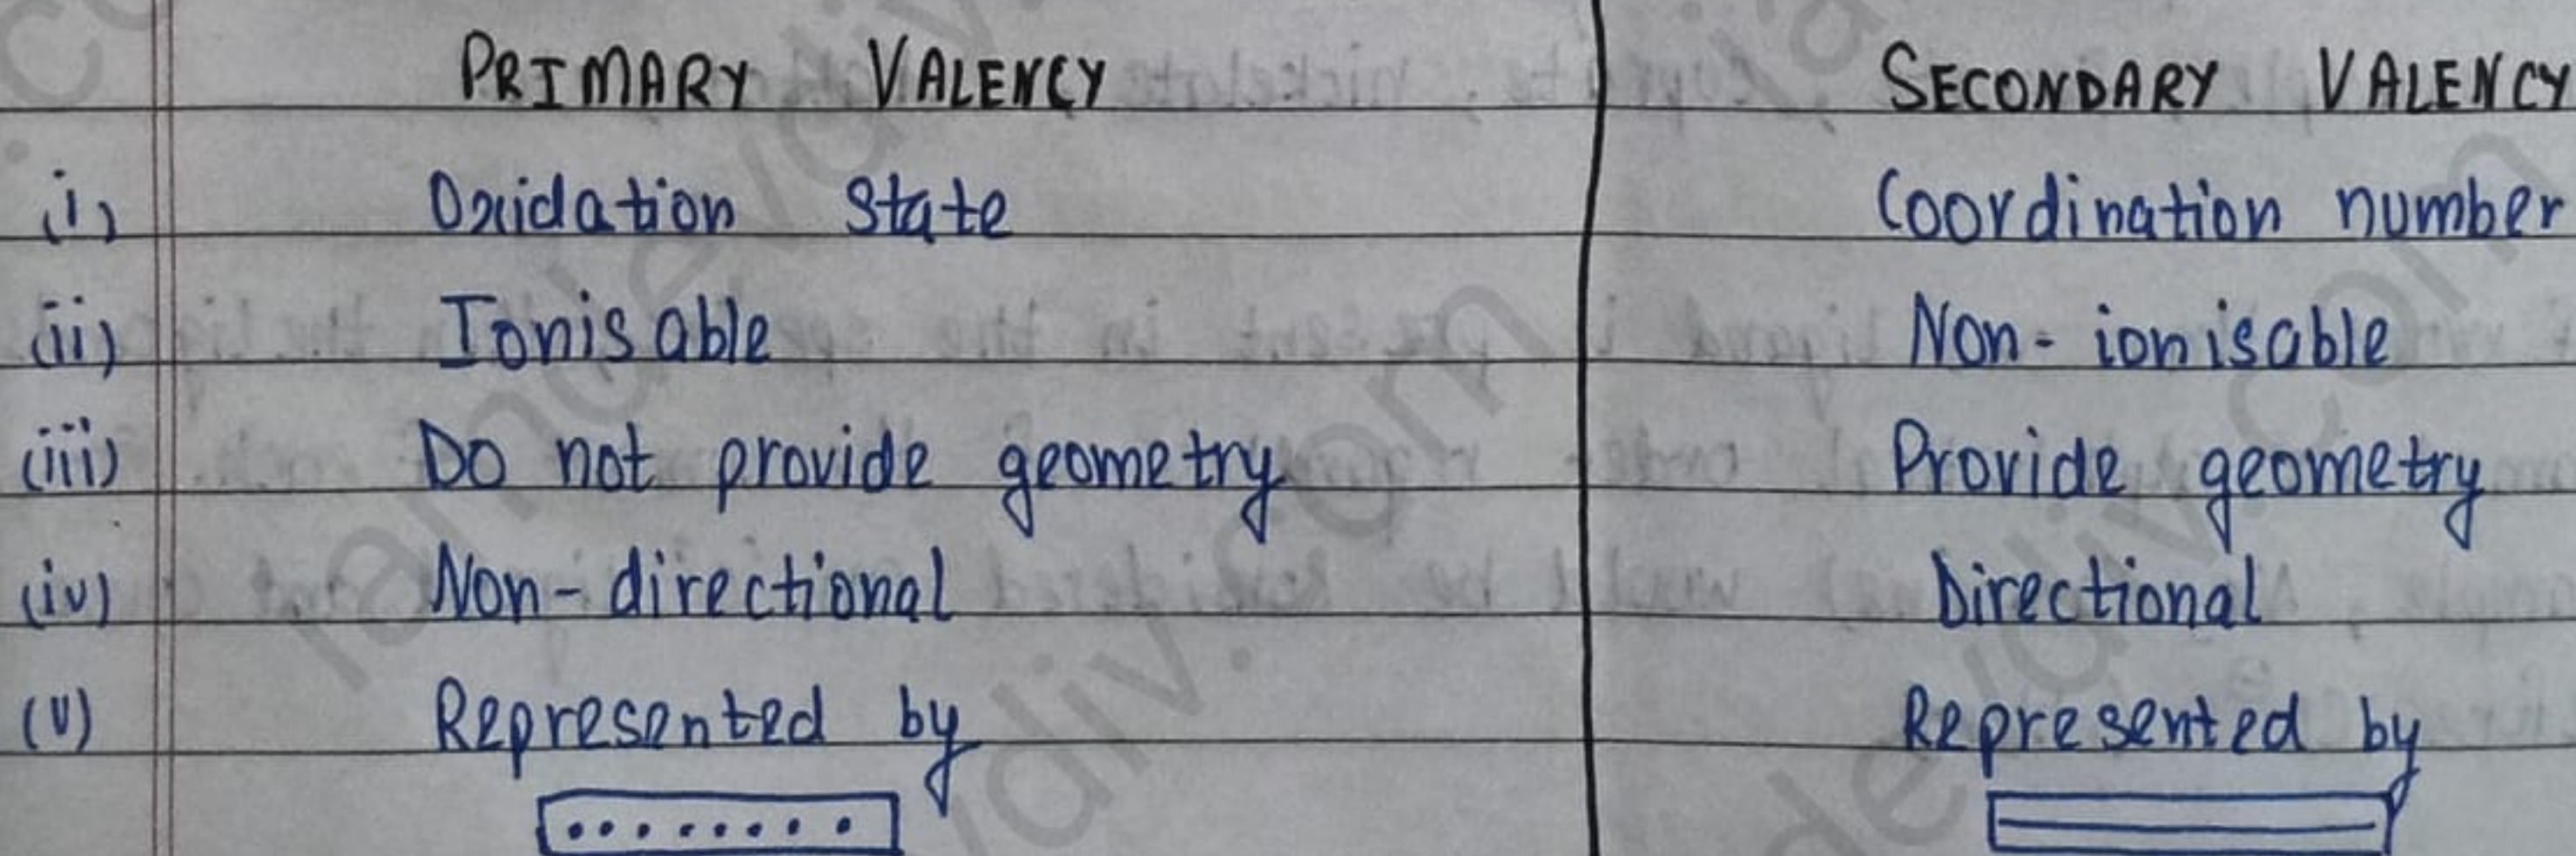 PRIMARY VALENCY SECONDARY VALENCY
(i) Oxidation state Coordination number
(ii) Ionisable Non-ionisable
(iii) Do not provide geometry Provide geometry
(iv) Non-directional Directional
(v) Represented by Represented by